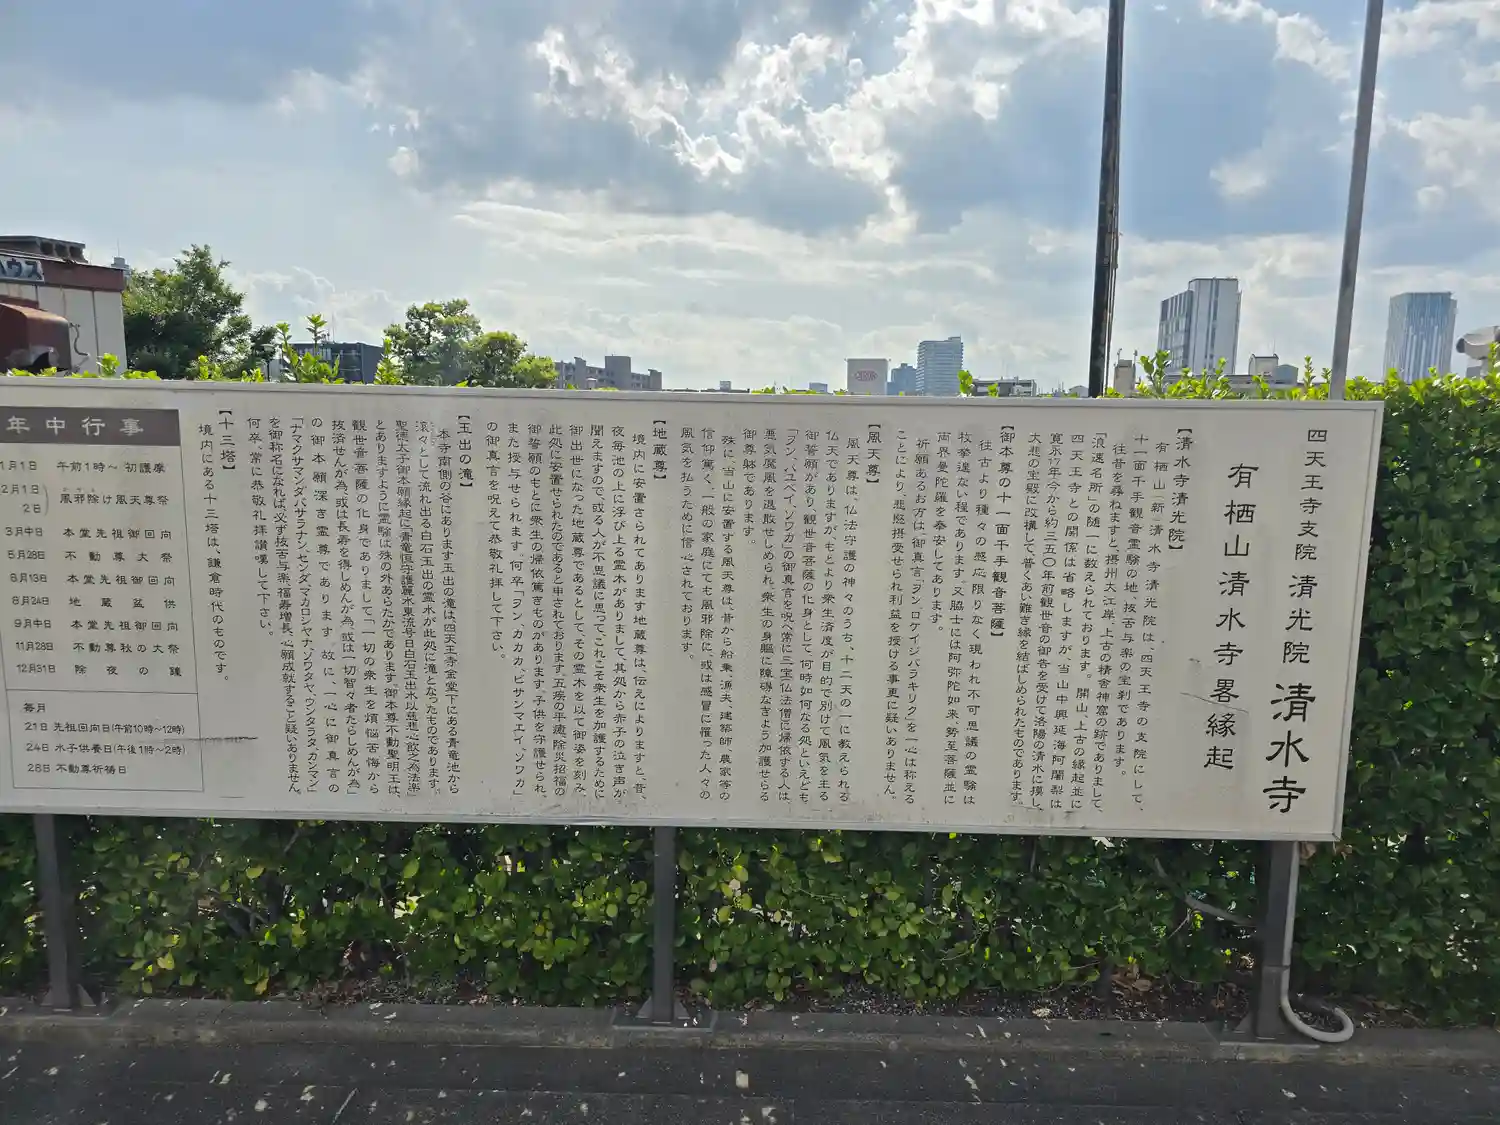 四天王寺支院 清光院 清水寺
有栖山清水寺畧縁起
【清水寺清光院】
有栖山(新)清水寺清光院は、四天王寺の支院にして、
十一面千手観音霊験の地、抜苦与楽の宝刹であります。
往昔を尋ねますと、摂州大江岸、上古の精舎神窟の跡でありまして、
「浪速名所」の随一に数えられております。開山、上古の縁起並に
四天王寺との関係は省略しますが、当山中興延海阿闍梨は
寛永十七年今から約三五〇年前観世音の御告を受けて洛陽の清水に摸し、
大悲の宝殿に改構して、普くあい難き縁を結ばしめられたものであります。
【御本尊の十一面千手観音菩薩】
往古より種々の感応限りなく現われ不可思議の霊験は
枚挙遑ない程であります。又脇士には阿弥陀如来、勢至菩薩並に
両界曼陀羅を奉安してあります。
祈願あるお方は、御真言「ヲンロケイジバラキリク」を一心は称える
ことにより、悲愍摂受せられ利益を授ける事更に疑いありません。
【風天尊】
風天尊は、仏法守護の神々のうち、十二天の一に教えられる
仏天でありますが、もとより衆生済度が目的で別けて風気を主る
御誓願があり、観世音菩薩の化身として、何時如何なる処といえども
「ヲン、バユベイ、ゾワカ」の御真言を呪へ常に三宝(仏法僧)に帰依する人は、
悪気魔風を退散せしめられ、衆生の身軀に障碍なきよう加護せらる
御尊躰であります。
殊に、当山に安置する風天尊は、昔から船乗、漁夫、建築師、農家等の
信仰篤く、一般の家庭にても風邪除に、或は感冒に罹った人々の
風気を払うために信心されております。
【地蔵尊】
境内に安置さられてあります地蔵尊は、伝えによりますと、昔、
夜毎池の上に浮び上る霊木がありまして、其処から赤子の泣き声が
聞えますので、或る人が不思議に思って、これこそ衆生を加護するために
御出世になった地蔵尊であるとして、その霊木を以て御姿を刻み、
此処に安置せられたのであると申されております。五歳の平癒、除災招福の
御誓願のもとに衆生の帰依篤きものがあります。子供を守護せられ、
また授与せられます。何卒「ヲン、カカカ、ビサンマエイ、ゾワカ」
の御真言を呪えて恭敬礼拝して下さい。
【玉出の滝】
本寺南側の谷にあります玉出の滝は、四天王寺金堂下にある青竜池から
滾々として流れ出る白石玉出の霊水が此処に滝となったものであります。
聖徳太子御本願縁起に「青竜恒守護麗水東流号曰白石玉出水以慈悲心飲之為法薬」
とありますように霊験は殊の外あらたかであります。御本尊不動聖明王は、
観世音菩薩の化身でありまして、「一切の衆生を煩悩苦海から
抜済せんが為、或は長寿を得しめんが為、或は一切智々者たらしめんが為」
の御本願深き霊尊であります。故に、一心に御真言の
「ナマクサマンダバサラナン、センダ、マカロシヤナ、ゾワタヤ、ウンタラタ、カンマン」
を御称名になれば必ず抜苦与楽、福寿増長、心願成就すること疑いありません。
何卒、常に恭敬礼拝讃嘆して下さい。
【十三塔】
境内にある十三塔は、鎌倉時代のものです。
年中行事
1月1日 午前1時〜 初護摩
2月1日
2日 風邪除け風天尊祭
3月中日 本堂先祖御回向
5月28日 不動尊大祭
8月13日 本堂先祖御回向
8月24日 地蔵盆供
9月中日 本堂先祖御回向
11月28日 不動尊秋の大祭
12月31日 除夜の鐘
毎月
21日 先祖回向日(午前10時〜12時)
24日 水子供養日(午後1時〜2時)
28日 不動尊祈祷日
ハウス